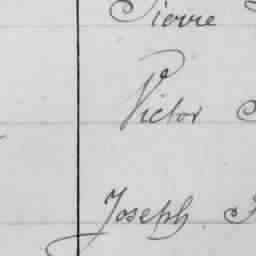 Pierre
Victor
Joseph